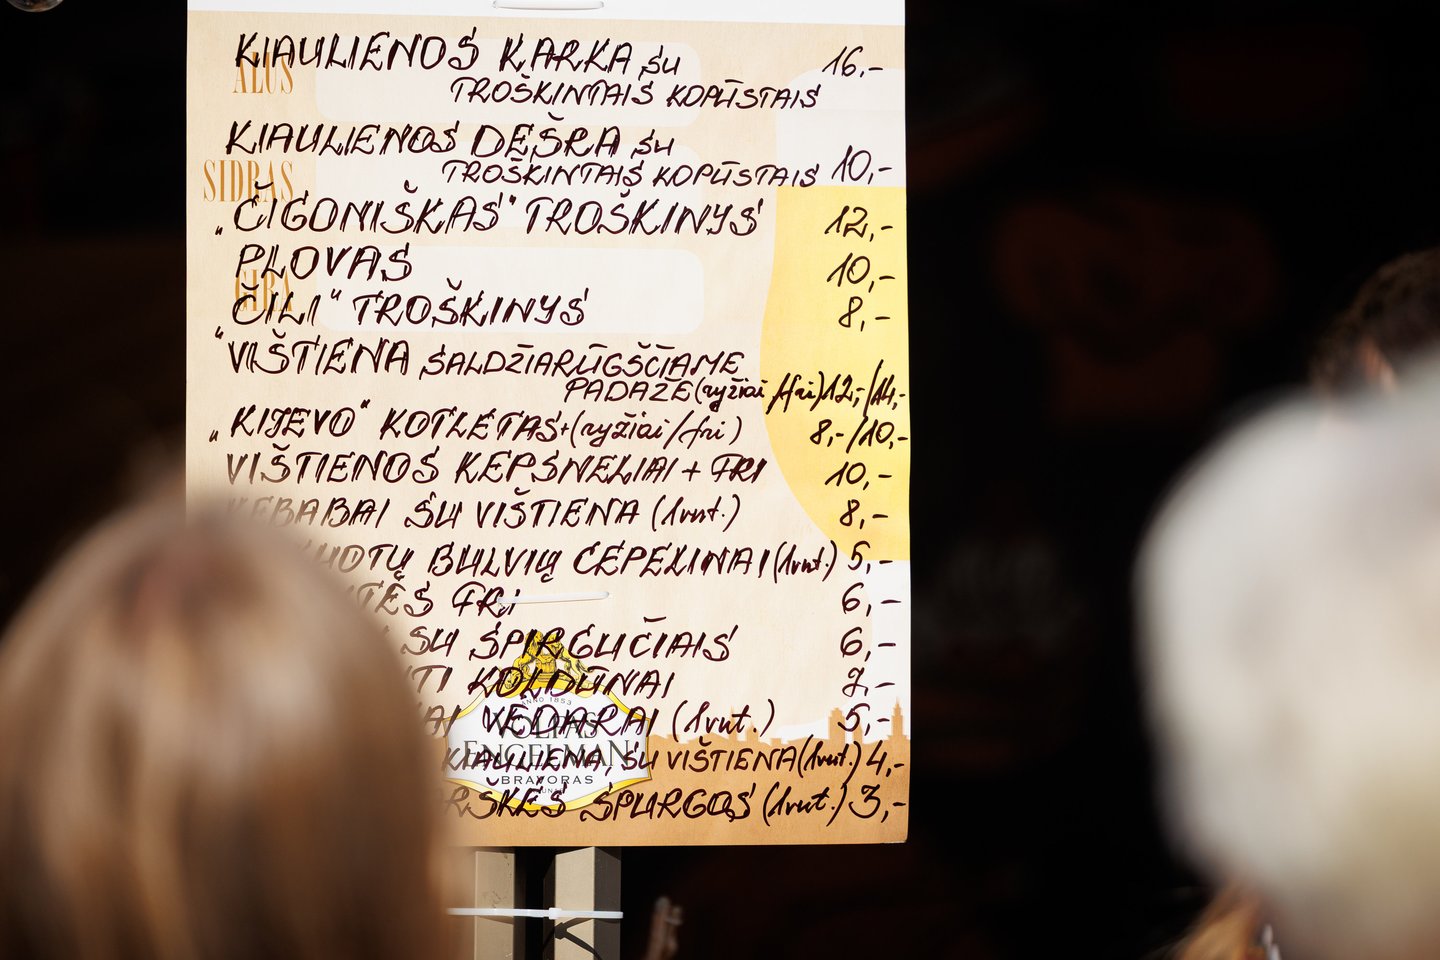 KIAULIENOS KARKA su 16,-
TROŠKINTAIS KOPŪSTAIS
ALUS
KIAULIENOS DEŠRA su
TROŠKINTAIS KOPŪSTAIS 10,-
SIDRAS
„ČIGONIŠKAS" TROŠKINYS 12,-
PLOVAS 10,-
GIRA
„ČILI" TROŠKINYS 8,-
VIŠTIENA SALDŽIARŪGŠČIAME
PADAŽE (ryžiai/fri) 12,-/14,-
„KIJEVO" KOTLETAS+(ryžiai/fri) 8,-/10,-
VIŠTIENOS KEPSNELIAI + FRI 10,-
KEBABAI SU VIŠTIENA (1vnt.) 8,-
BULVIŲ CEPELINAI (1vnt.) 5,-
FRI 6,-
SU SPIRGUČIAIS 6,-
KOLDŪNAI 7,-
ANNO 1853
VĖDARAI (1vnt.) 5,-
VOLFAS
ENGELMAN
KIAULIENA, SU VIŠTIENA (1vnt.) 4,-
BRAVORAS
SPURGOS (1vnt.) 3,-